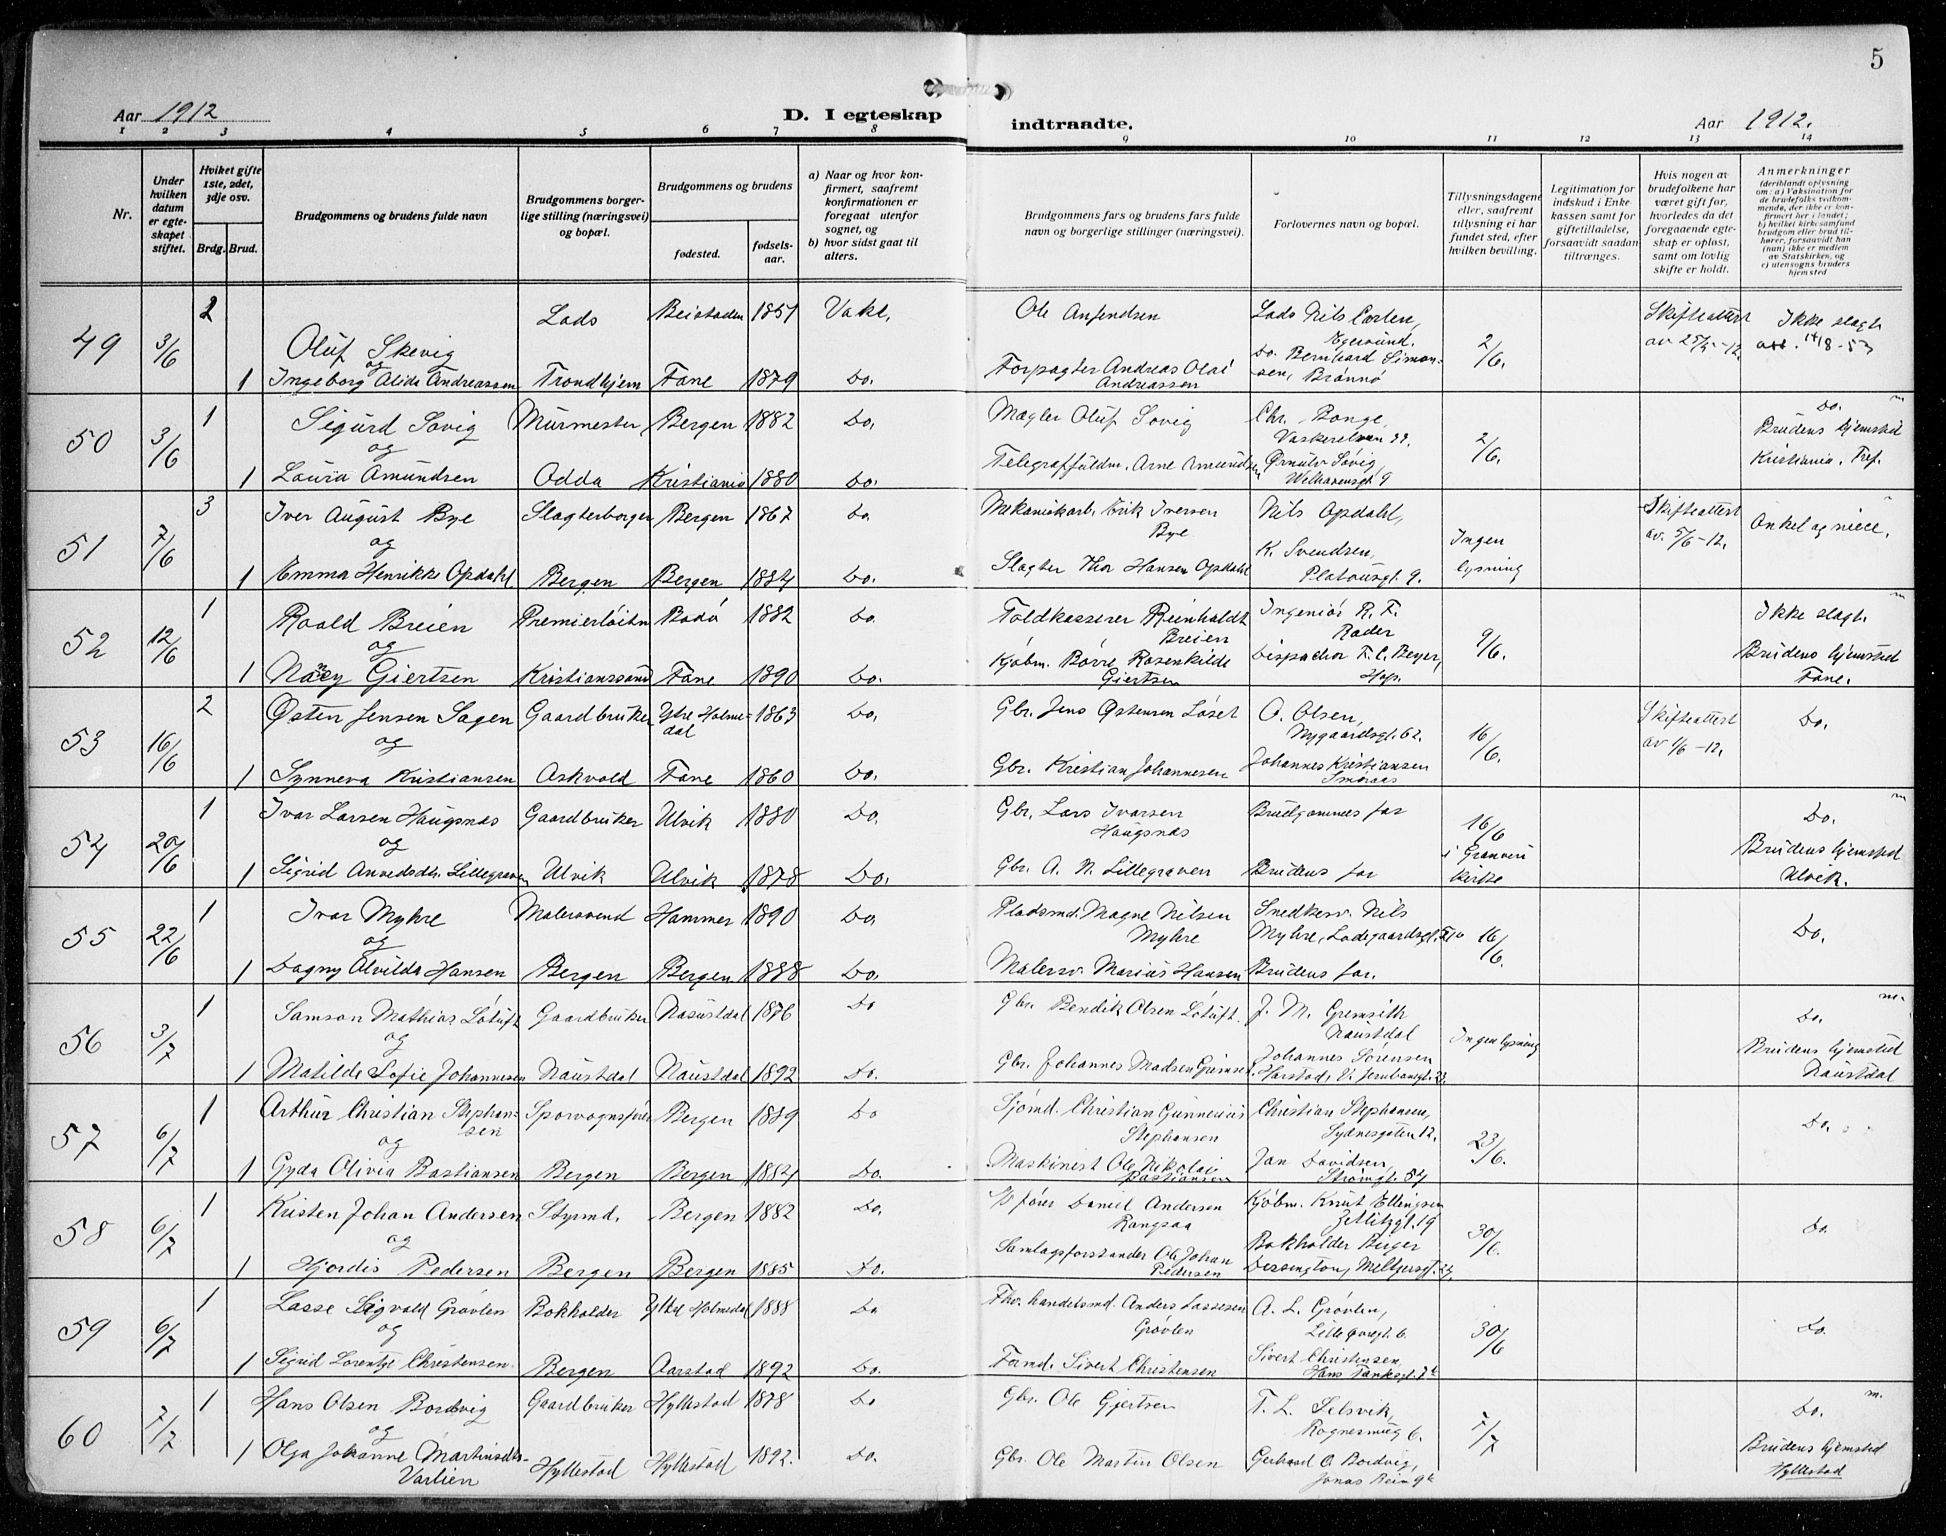 5
Aar 1912
D. I egteskap indtraadte.
Aar 1912.
1 2 3 4 5 6 7 8 9 10 11 12 13 14
Nr.
Under hvilken datum er egteskapet stiftet.
Hviket gifte 1ste, 2det, 3dje osv.
Brdg. Brud.
Brudgommens og brudens fulde navn
Brudgommens borgerlige stilling (næringsvei) og bopæl.
Brudgommens og brudens
fødested.
fødselsaar.
a) Naar og hvor konfirmert, saafremt konfirmationen er foregaat utenfor sognet, og
b) hvor sidst gaat til alters.
Brudgommens fars og brudens fars fulde navn og borgerlige stillinger (næringsvei).
Forlovernes navn og bopæl.
Tillysningsdagene eller, saafremt tillysning ei har fundet sted, efter hvilken bevilling.
Legitimation for indskud i Enkekassen samt for giftetilladelse, forsaavidt saadan tiltrænges.
Hvis nogen av brudefolkene har været gift før, hvorledes da det foregaaende egteskap er opløst, samt om lovlig skifte er holdt.
Anmerkninger
(deriblandt oplysning om: a) Vaksination for de brudefolks vedkommende, der ikke er konfirmert her i landet; b) hvilket kirkesamfund brudgom eller brud tilhører, forsaavidt han (hun) ikke er medlem av Statskirken, og c) utensogns bruders hjemsted
49 3/6 2 Oluf Skevig Lods Beistaden 1851 Vakl. Ole Anfendsen Lods Nils Carlen, Egersund. 2/6. Skifteattest av 25/5-12. Ikke slagt
og
1 Ingeborg Alida Andreassen Trondhjem Fane 1879 Do. Forpagter Andreas Olai Andreassen Do. Bernhard Simonsen, Brønnø
50 3/6 1 Sigurd Søvig Murmester Bergen 1882 Do. Mægler Oluf Søvig Chr. Bonge, Vaskerelven 22. 2/6. Do. Brudens hjemsted Kristiania.
og
1 Laura Amundsen Odda Kristiania 1880 Do. Telegraffuldm. Arne Amundsen Ørnulv Søvig, Welhavensgt. 9
51 7/6 3 Iver August Bye Slagterborger Bergen 1867 Do. Mekanikarb. Erik Iversen Bye Nils Opdahl, Ingen lysning Skifteattest av. 5/6-12. Onkel og niece.
og
1 Emma Henrikke Opdahl Bergen Bergen 1884 Do. Slagter Thor Hansen Opdahl K. Svendsen, Platousgt. 9.
52 12/6 1 Roald Breien Premierløitn Bodø 1882 Do. Toldkasserer Reinholdt Breien Ingeniør R. F. Rader 9/6. Ikke slagt. Brudens hjemsted Fane.
og
1 Nancy Giertsen Kristianssand Fane 1890 Do. Kjøbm. Børre Rosenkilde Giertsen Dispachør F. C. Beyer, Hop.
53 16/6 2 Østen Jensen Sagen Gaardbruker Ytre Holmedal 1863 Do. Gbr. Jens Østensen Løset O. Olsen, Nygaardsgt. 62. 16/6. Skifteattest av 1/6-12. Do.
og
1 Synneva Kristiansen Askvold Fane 1860 Do. Gbr. Kristian Johannesen Johannes Kristiansen Smøraas
54 20/6 1 Ivar Larsen Haugsnæs Gaardbruker Ulvik 1880 Do. Gbr. Lars Ivarsen Haugsnæs Brudgommes far 16/6 i Granvin kirke Do. Brudens hjemsted Ulvik.
og
1 Sigrid Anvedsdtr. Lillegraven Ulvik Ulvik 1878 Do. Gbr. A. N. Lillegraven Brudens far
55 22/6 1 Ivar Myhre Malersvend Hammer 1890 Do. Pladsmd. Magne Nilsen Myhre Snedkersv. Nils Myhre, Ladegaardsgt. 16/6. Do.
og
1 Dagny Alvilda Hansen Bergen Bergen 1888 Do. Malersv. Marius Hansen Brudens far.
56 3/7 1 Samson Mathias Løtuft Gaardbruker Naustdal 1876 Do Gbr. Bendik Olsen Løtuft. J. M. Gremseth Naustdal Ingen lysning Do. Brudens hjemsted Naustdal
og
1 Matilde Sofie Johannesen Naustdal Naustdal 1892 Do. Gbr. Johannes Madsen Johannes Sørensen Harstad, V. Jernbanegt. 23.
57 6/7 1 Arthur Christian Stephansen Sporvognsfører Bergen 1889 Do Sjømd. Christian Gunnerius Stephansen Christian Stephansen, Sydnesgaten 12. 23/6. Do.
og
1 Gyda Olivia Bastiansen Bergen Bergen 1884 Do. Maskinist Ole Nikolai Bastiansen Jan Davidsen, Strømgt. 54
58 6/7 1 Kristen Johan Andersen Styrmd. Bergen 1882 Do. fører Daniel Andersen Rangsaa Kjøbm. Knut Ellingsen Zetlitzgt. 19 30/6. Do.
og
1 Hjørdis Pedersen Bergen Bergen 1885 Do. Samlagsforstander Ole Johan Pedersen Bokholder Birger Dessington, Meltzersgt.
59 6/7 1 Lasse Sigvald Grøvlen Bokholder Ytre Holmedal 1888 Do Fhv. handelsmd. Anders Lassesen Grøvlen A. L. Grøvlen, Lille Øvregt. 6. 30/6 Do.
og
1 Sigrid Lorentze Christensen Bergen Aarstad 1892 Do. Formd. Sivert Christensen Sivert Christensen, Hans Tanksgt.
60 7/7 1 Hans Olsen Bordvig Gaardbruker Hyllestad 1878 Do Gbr. Ole Gjertsen T. L. Selsvik, Rognesmug 6. 7/7 Do. Brudens hjemsted Hyllestad
og
1 Olga Johanne Martinsdtr. Varlien Hyllestad Hyllestad 1892. Do. Gbr. Ole Martin Olsen Gerhard O. Bordvig, Jonas Reinsgt.